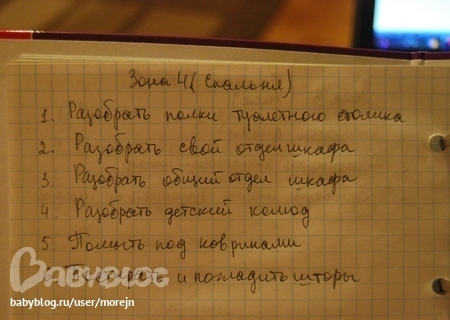 Зона 4 (Спальня)
1. Разобрать полки туалетного столика
2. Разобрать свой отдел шкафа
3. Разобрать общий отдел шкафа
4. Разобрать детский комод
5. Помыть под ковриками
и погладить шторы
BABYBLOG
babyblog.ru/user/morejn